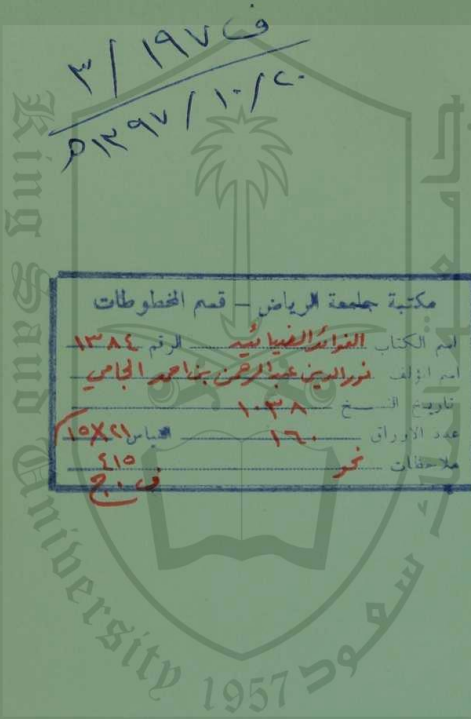 ف ١٩٧ / ٣
٢٠ / ١٠ / ١٣٩٧ هـ
مكتبة جامعة الرياض – قسم المخطوطات
اسم الكتاب الفوائد الضيائية الرقم ١٣٨٤
اسم المؤلف نور الدين عبد الرحمن بن احمد الجامي
تاريخ النسخ ١٠٣٨
عدد الأوراق ١٦٠ القياس ٢١×١٥
ملاحظات نحو ٤١٥
King Saud University
1957